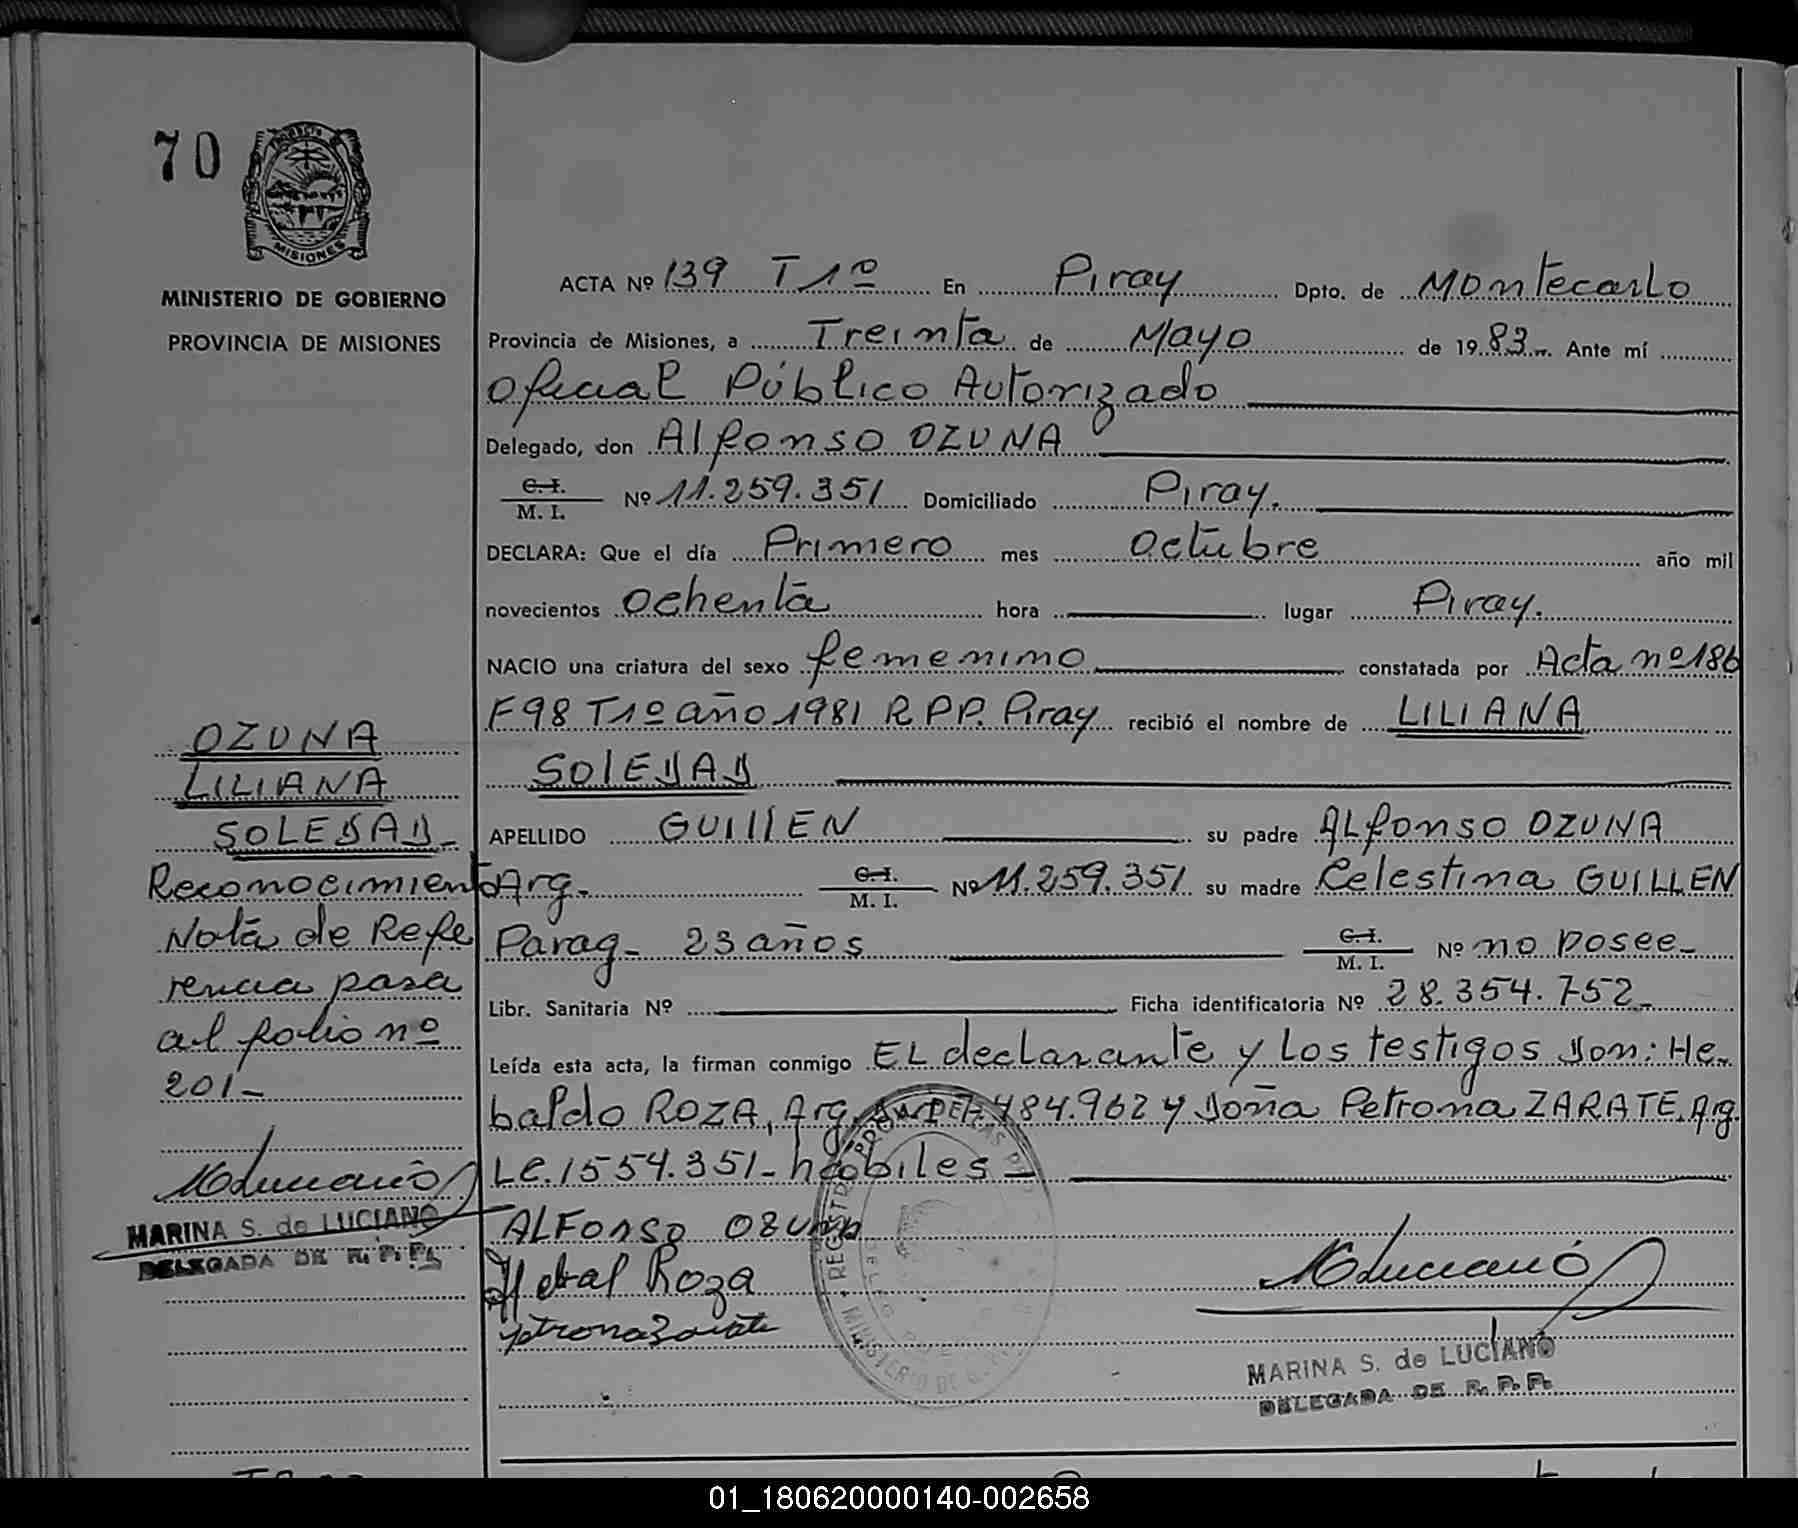 70
MISIONES
MINISTERIO DE GOBIERNO
PROVINCIA DE MISIONES
OZUNA
LILIANA
SOLEDAD-
Reconocimiento
Nota de Refe
rencia pasa
al folio nº
201-
MARINA S. de LUCIANO
DELEGADA DE R. P. P.
ACTA Nº 139 T 1º En Piray Dpto. de Montecarlo
Provincia de Misiones, a Treinta de Mayo de 1983. Ante mí
Oficial Público Autorizado
Delegado, don Alfonso OZUNA
C. I. M. I. Nº 11.259.351 Domiciliado Piray.
DECLARA: Que el día Primero mes Octubre año mil
novecientos Ochenta hora lugar Piray.
NACIO una criatura del sexo femenino constatada por Acta nº 186
F98 T1º año 1981 R.P.P. Piray recibió el nombre de LILIANA
SOLEDAD
APELLIDO GUILLEN su padre Alfonso OZUNA
Arg. C. I. M. I. Nº 11.259.351 su madre Celestina GUILLEN
Parag- 23 años C. I. M. I. Nº no posee-
Libr. Sanitaria Nº Ficha identificatoria Nº 28.354.752-
Leída esta acta, la firman conmigo EL declarante y Los testigos Don: He-
baldo ROZA, Arg. 484.962 y Doña Petrona ZARATE. Arg.
Le. 1554.351- hábiles-
ALFONSO OZUNA
Roza
MARINA S. de LUCIANO
DELEGADA DE R. P. P.
01_180620000140-002658